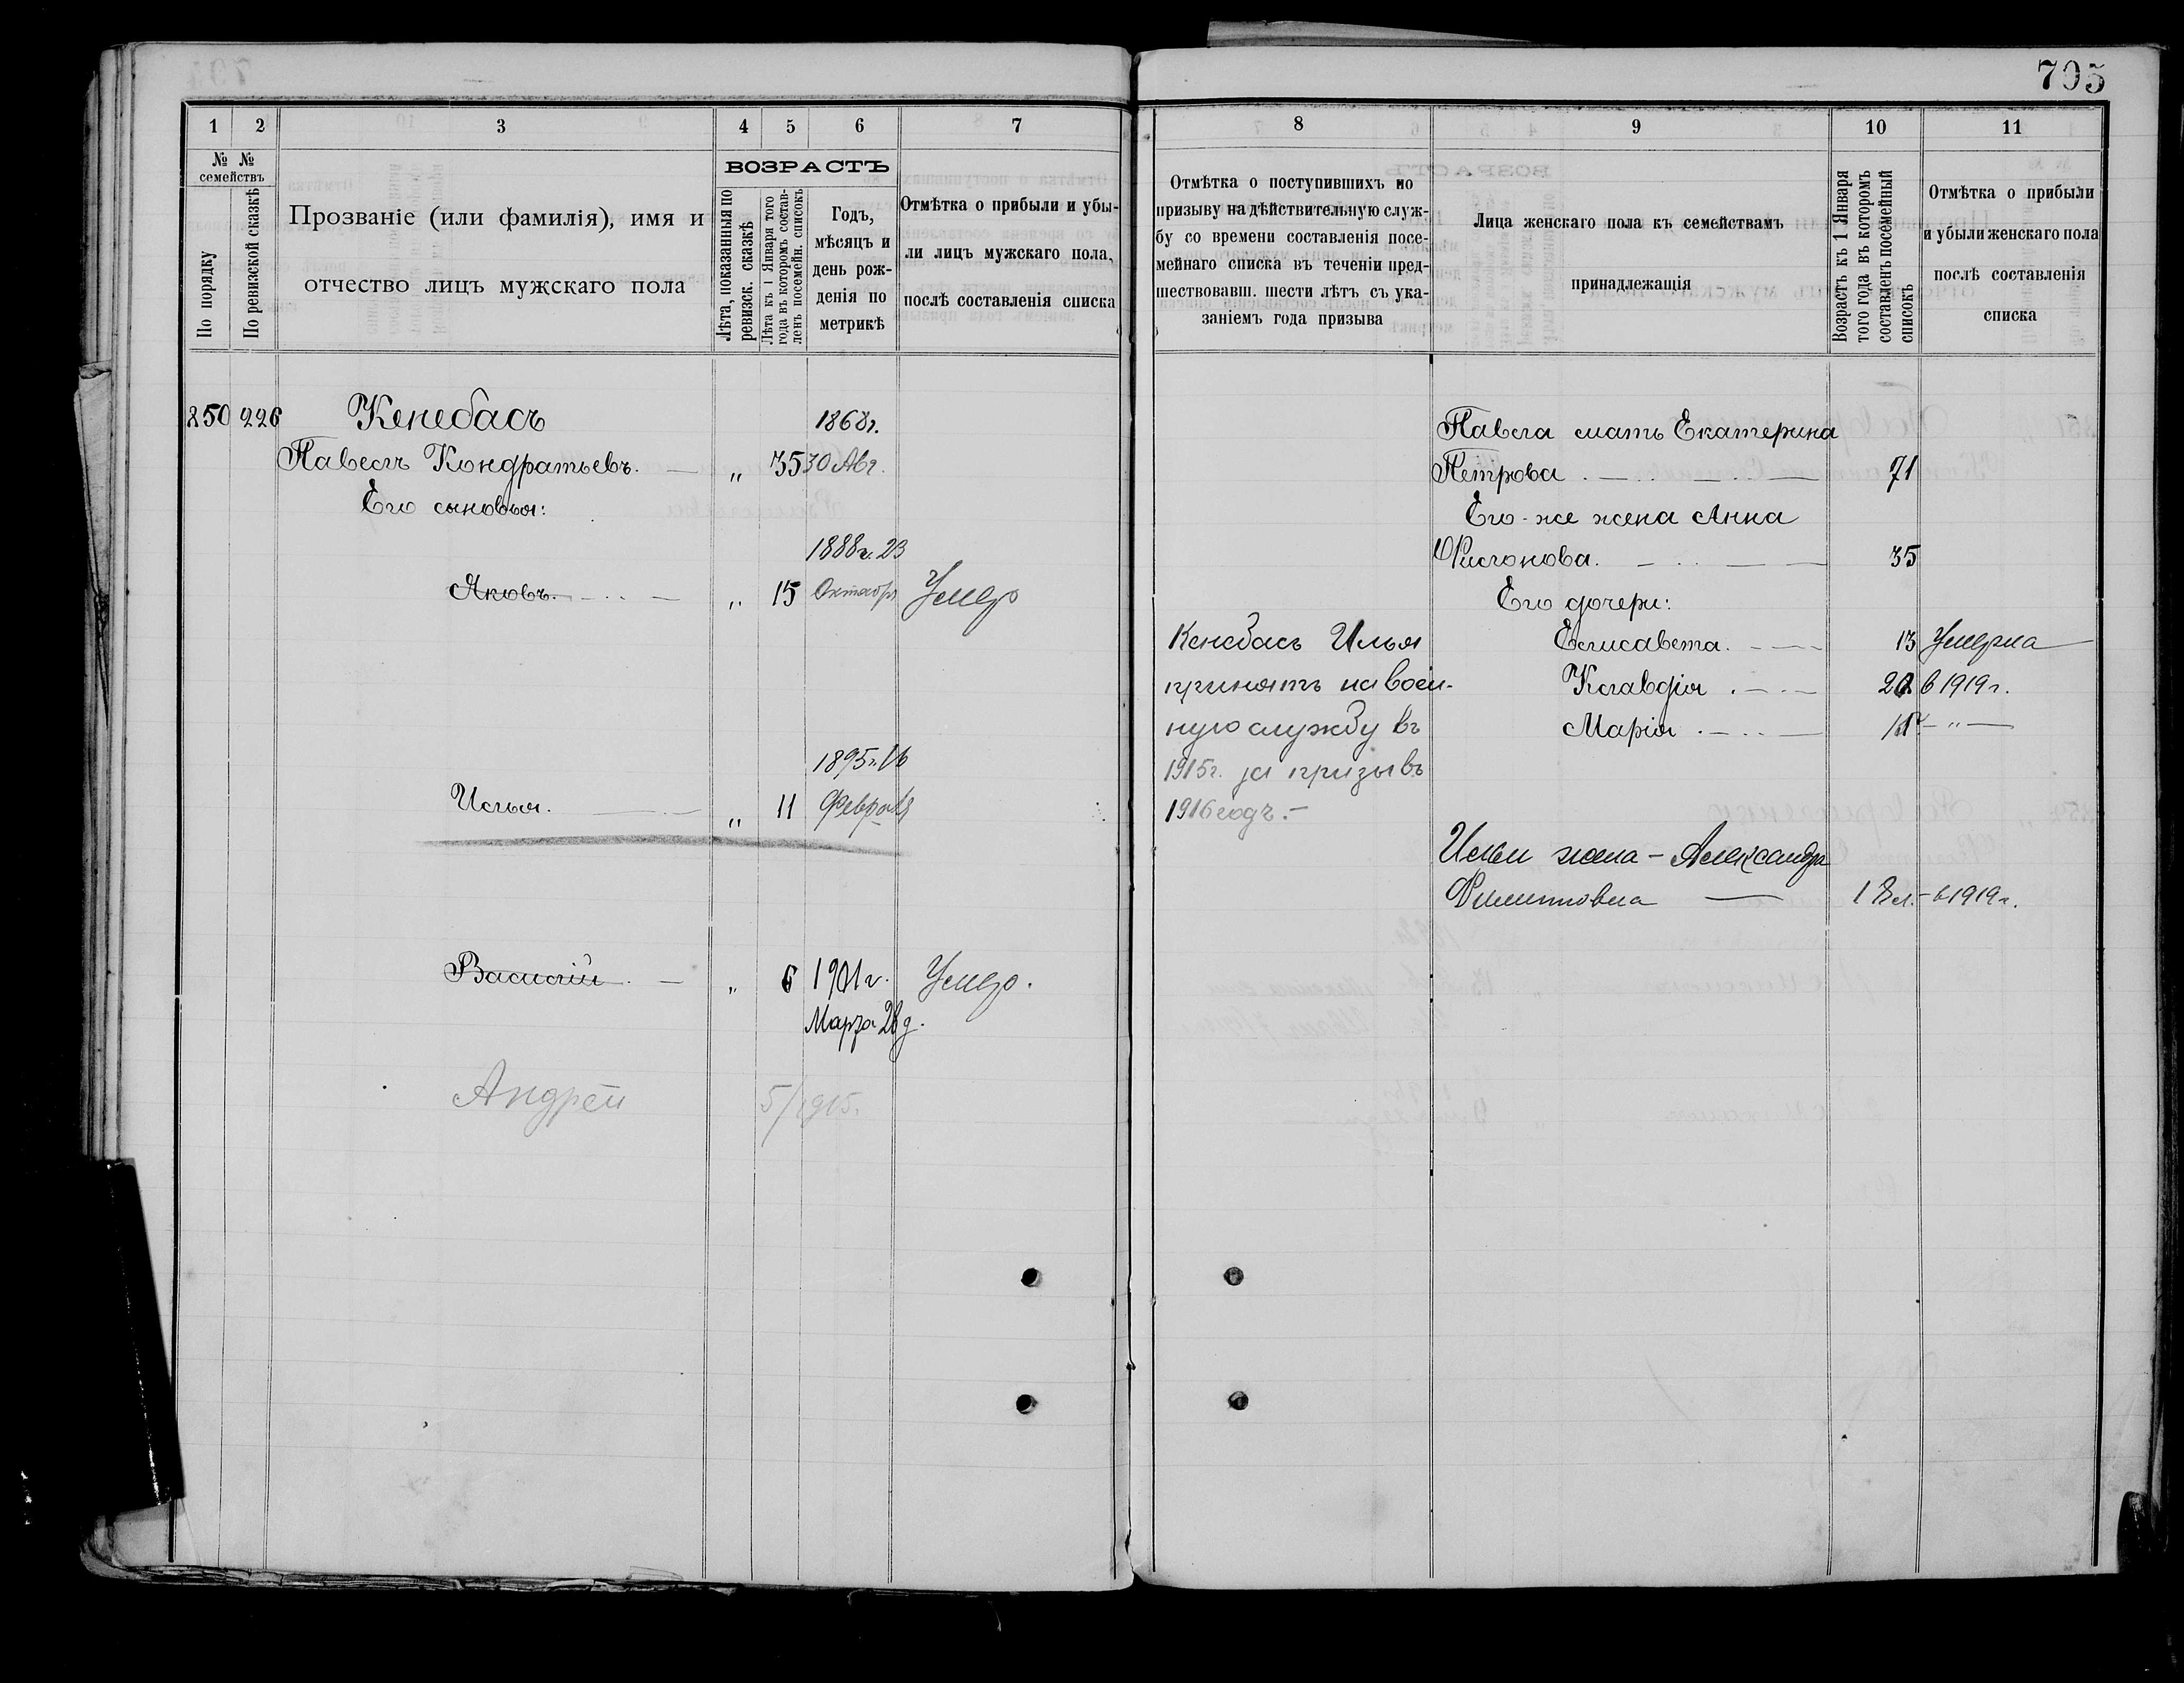 705
1 2 3 4 5 6 7
№ № семействъ
По порядку
По ревизской сказкѣ
Прозваніе (или фамилія), имя и
отчество лицъ мужскаго пола
ВОЗРАСТЪ
Лѣта, показанныя по
ревизск. сказкѣ
Лѣта къ 1 Января того
года въ которомъ состав-
ленъ посемейн. списокъ
Годъ,
мѣсяцъ и
день рож-
денія по
метрикѣ
Отмѣтка о прибыли и убы-
ли лицъ мужскаго пола,
послѣ составленія списка
850 226 Кенебасъ 1868г.
Павелъ Кондратьевъ. — „ 35 30 Авг.
Его сыновья:
1888г. 23
Яковъ. — „ 15 Октября Умеръ
1895г. 16
Илья. — „ 11 Февраля
Василій. — „ 6 1901г. Умеръ.
Марта 28 д.
Андрей 5/1915.
8 9 10 11
Отмѣтка о поступившихъ по
призыву на дѣйствительную служ-
бу со времени составленія посе-
мейнаго списка въ теченіи пред-
шествовавш. шести лѣтъ съ ука-
заніемъ года призыва
Лица женскаго пола къ семействамъ
принадлежащія
Возрастъ къ 1 Января
того года въ которомъ
составленъ посемейный
списокъ
Отмѣтка о прибыли
и убыли женскаго пола
послѣ составленія
списка
Кенебасъ Илья
принятъ на воен-
ную службу въ
1915г. за призывъ
1916 годъ. —
Павла мать Екатерина
Петрова. — 71
Его-же жена Анна
Филонова. — 35
Его дочери:
Елисавета. — 13 Умерла
Клавдія. — в 1919г.
Марія. — „ —
Ильи жена — Александра
Филипповна — 18 л. — в 1919г.